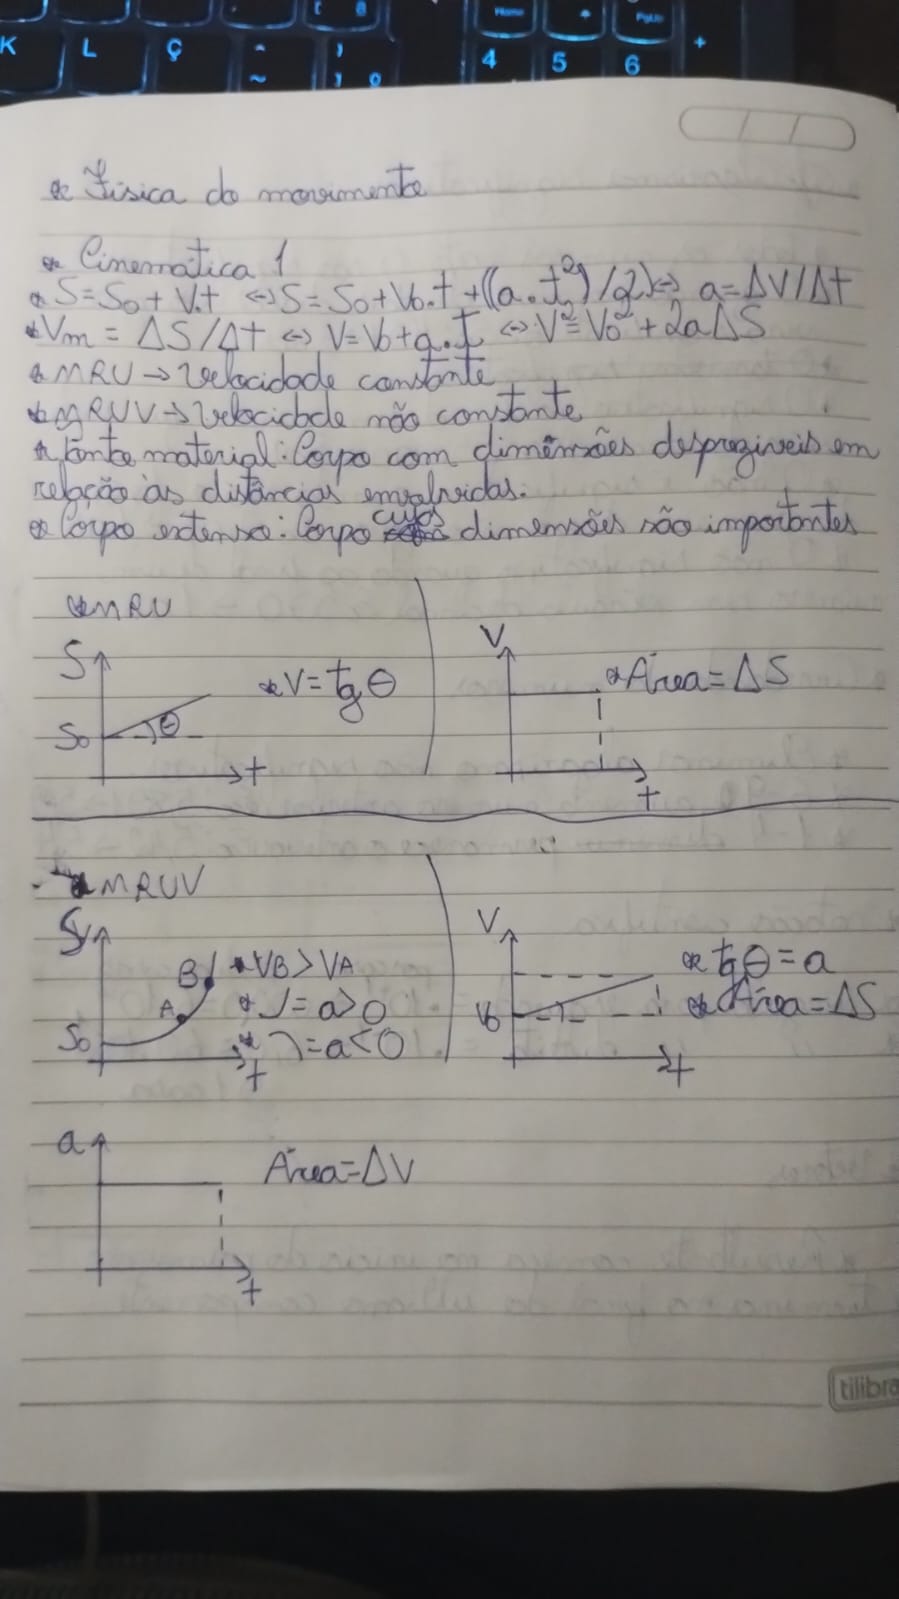 * Física do movimento
* Cinemática 1
* S=S₀+V.t ⇔ S=S₀+V₀.t+((a.t²)/2) ⇔ a=ΔV/Δt
* Vm = ΔS/Δt ⇔ V=V₀+a.t ⇔ V²=V₀²+2aΔS
* MRU → velocidade constante
* MRUV → velocidade não constante
* Ponto material: Corpo com dimensões despregiveis em
relação às distâncias envolvidas.
* Corpo extenso: Corpo cujas dimensões são importantes
* MRU
S
S₀
θ
t
* V=tgθ
V
* Área=ΔS
t
* MRUV
S
B
A
S₀
t
* VB>VA
* ⌡=a>0
* ⌉=a<0
V
V₀
t
* tgθ=a
* Área=ΔS
a
Área=ΔV
t
tilibra
K L Ç ^ ~ } ] º [ ª
Home 4 5 PgUp 6 +